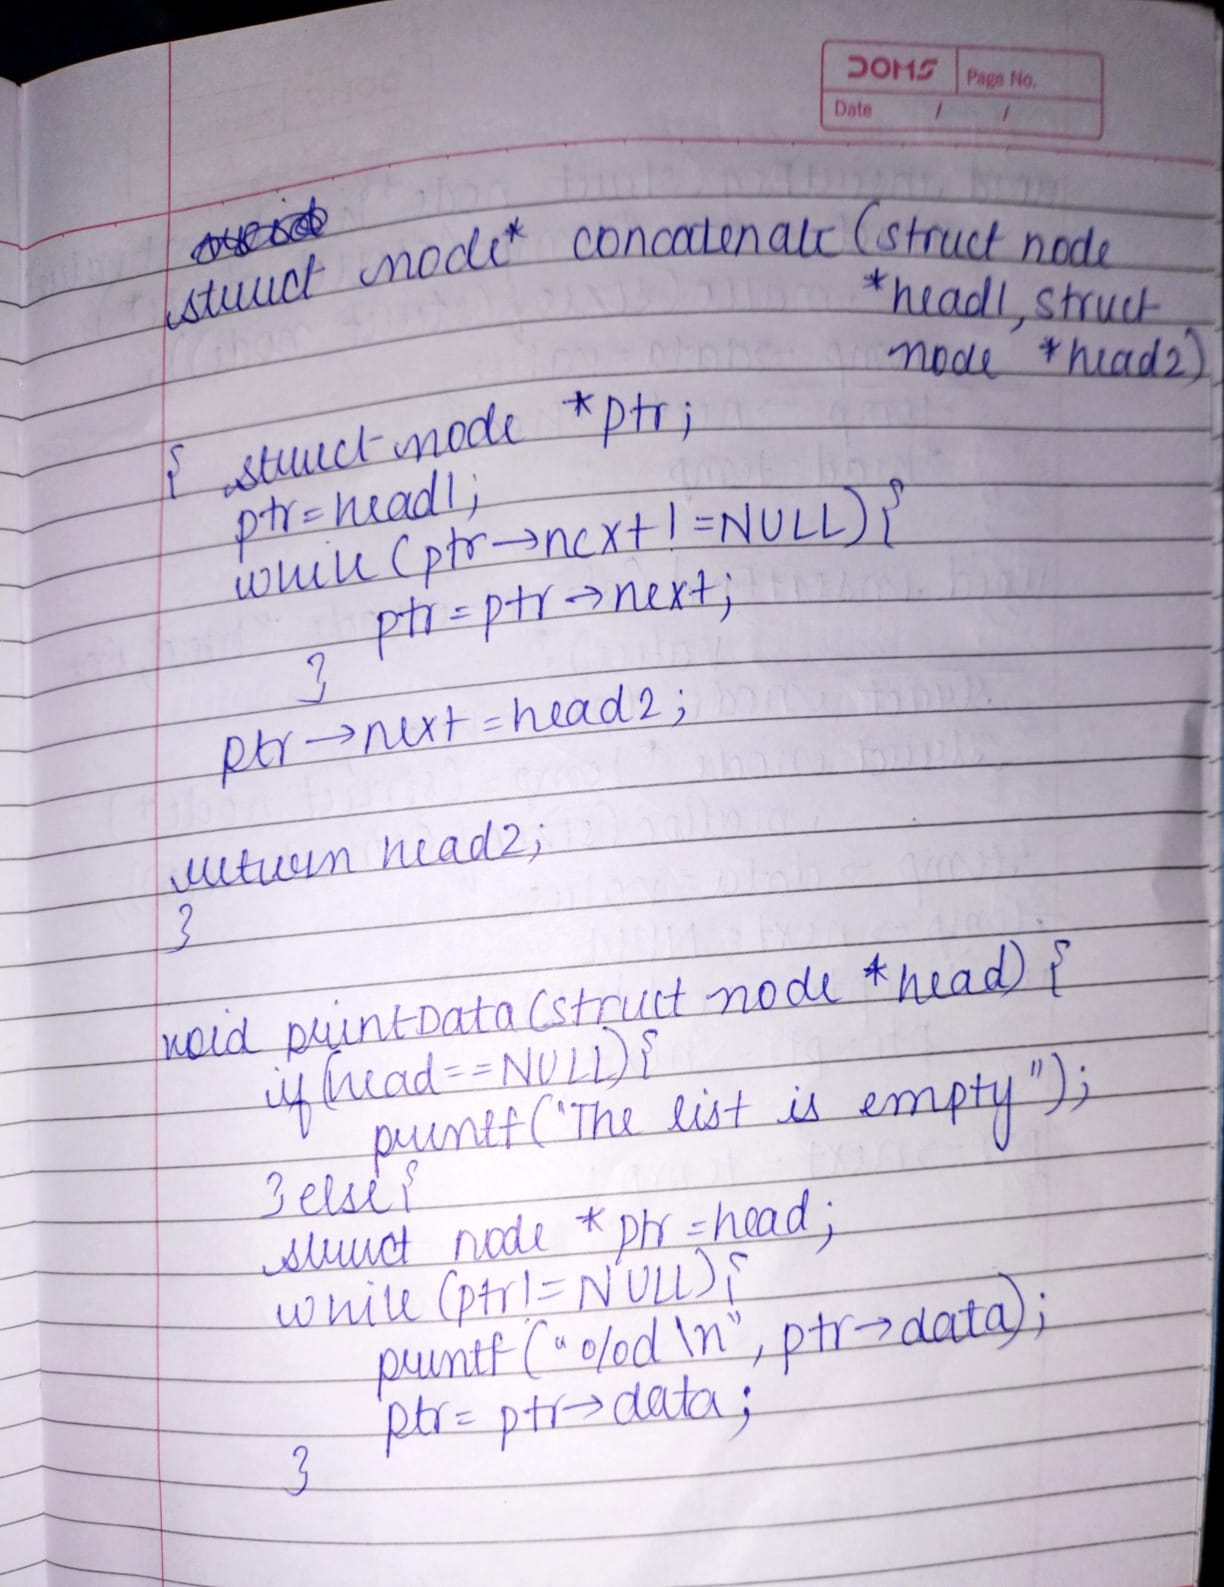 DOMS
Page No.
Date / /
struct node* concatenate (struct node
*head1, struct
node *head2)
{ struct node *ptr;
ptr=head1;
while (ptr→next!=NULL){
ptr=ptr→next;
}
ptr→next=head2;
return head2;
}
void printData(struct node *head) {
if(head==NULL){
printf("The list is empty");
}else{
struct node *ptr=head;
while (ptr!=NULL){
printf("%d\n", ptr→data);
ptr= ptr→data;
}